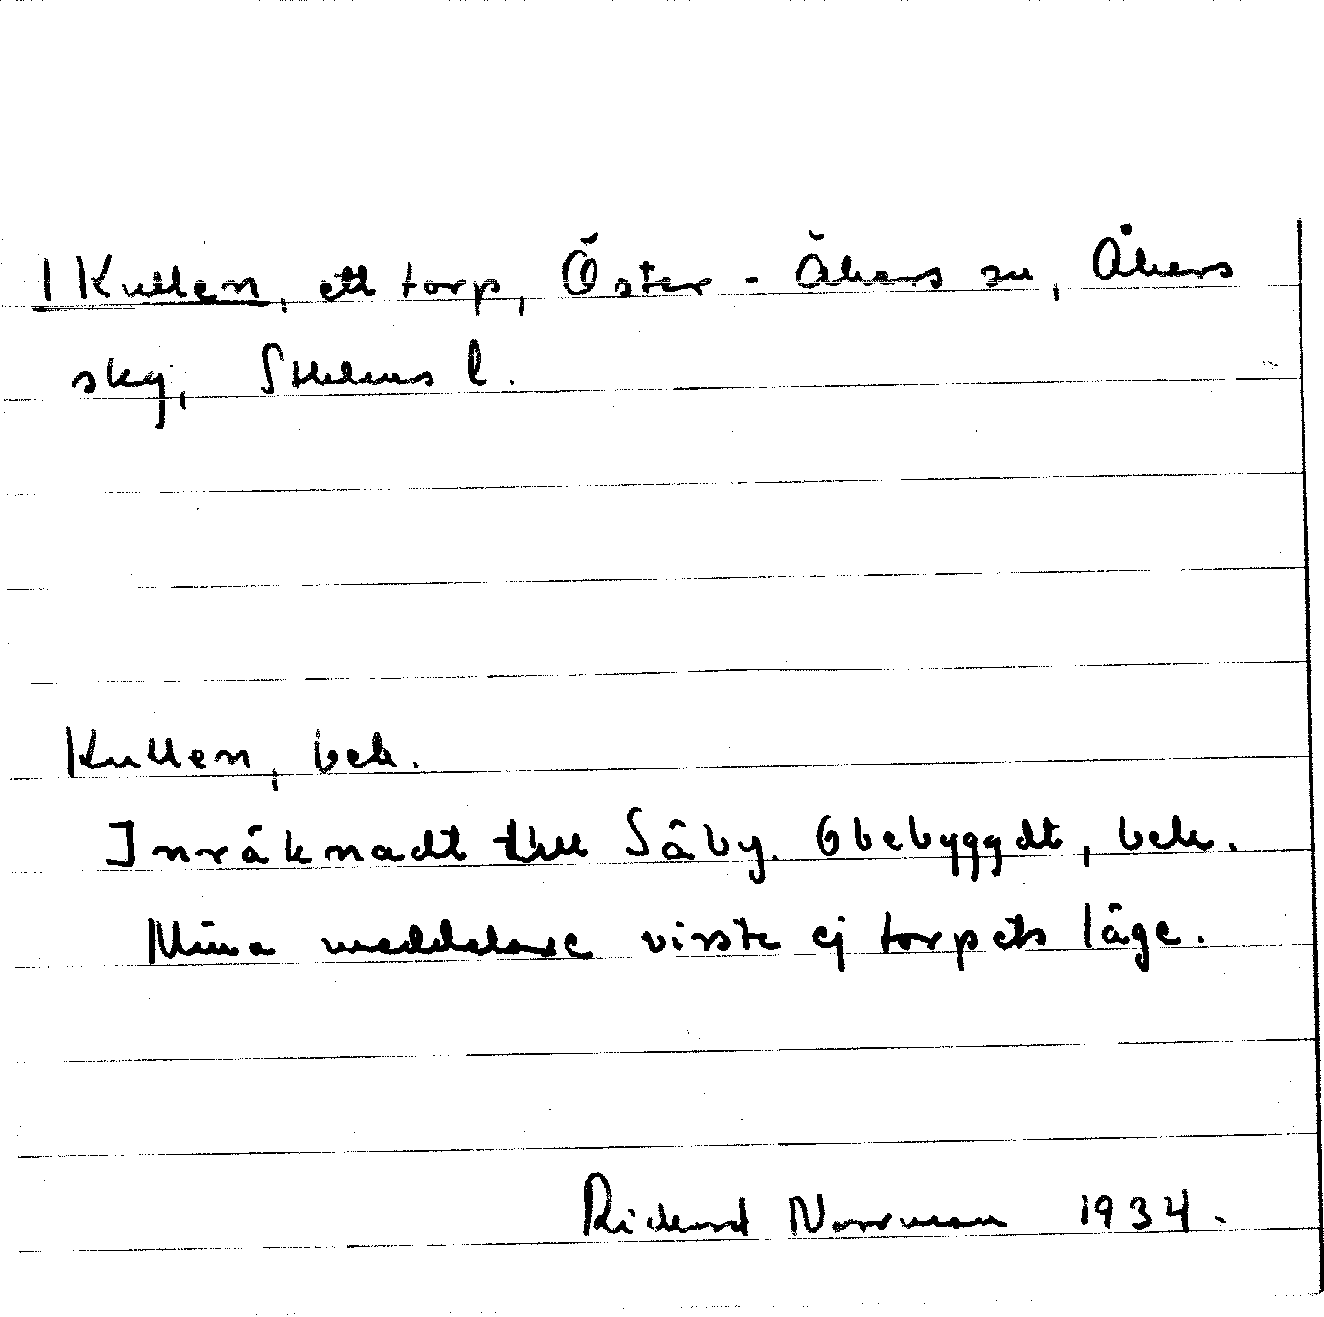 1 Kullen, ett torp, Öster-Åkers sn, Åkers
skg, Sthlms l.
Kullen, bek.
Inräknadt till Säby. Obebyggdt, bek.
Mina meddelare visste ej torpets läge.
Rickard Norrman 1934.